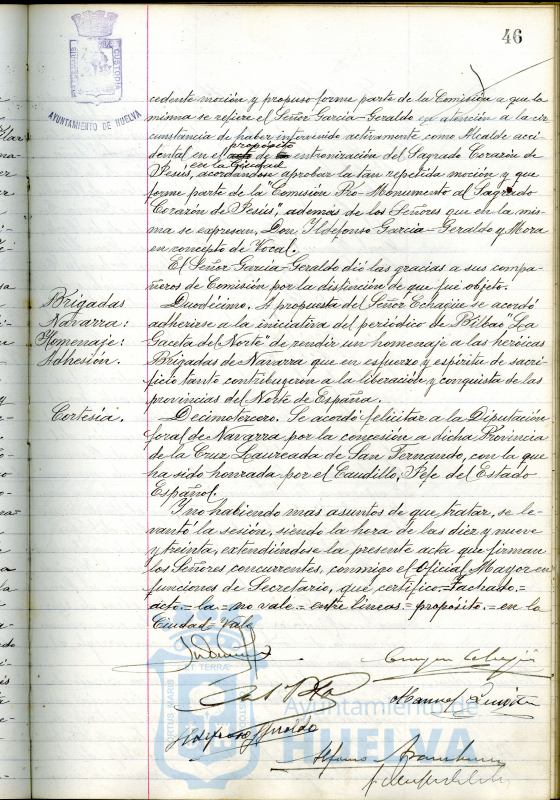 46
AYUNTAMIENTO DE HUELVA
cedente moción y propuso forme parte de la Comisión a que la
misma se refiere el Señor García-Geraldo en atención a la cir
cunstancia de haber intervenido activamente como Alcalde acci
propósito
dental en el acto de la entronización del Sagrado Corazón de
en la Ciudad
Jesús, acordándose aprobar la tan repetida moción y que
forme parte de la "Comisión Pro-Monumento al Sagrado
Corazón de Jesús", además de los Señores que en la mis-
ma se expresan, Don Ildefonso García-Geraldo y Mora
en concepto de Vocal.
El Señor García-Geraldo dió las gracias a sus compa-
ñeros de Comisión por la distinción de que fué objeto.
Brigadas
Navarra:
Homenaje:
Adhesión.
Duodécimo. A propuesta del Señor Echagüe se acordó
adherirse a la iniciativa del periódico de Bilbao "La
Gaceta del Norte" de rendir un homenaje a las heróicas
Brigadas de Navarra que en esfuerzo y espíritu de sacri-
ficio tanto contribuyeron a la liberación y conquista de las
provincias del Norte de España.
Cortesía.
Decimotercero. Se acordó felicitar a la Diputación
foral de Navarra por la concesión a dicha Provincia
de la Cruz Laureada de San Fernando, con la que
ha sido honrada por el Caudillo, Jefe del Estado
Español.
Y no habiendo mas asuntos de que tratar, se le-
vantó la sesión, siendo la hora de las diez y nueve
y treinta, extendiendose la presente acta que firman
los Señores concurrentes, conmigo el Oficial Mayor en
funciones de Secretario, que certifico = Tachado =
acto = la = no vale = entre lineas = propósito = en la
Ciudad = Vale
Ayuntamiento de
HUELVA